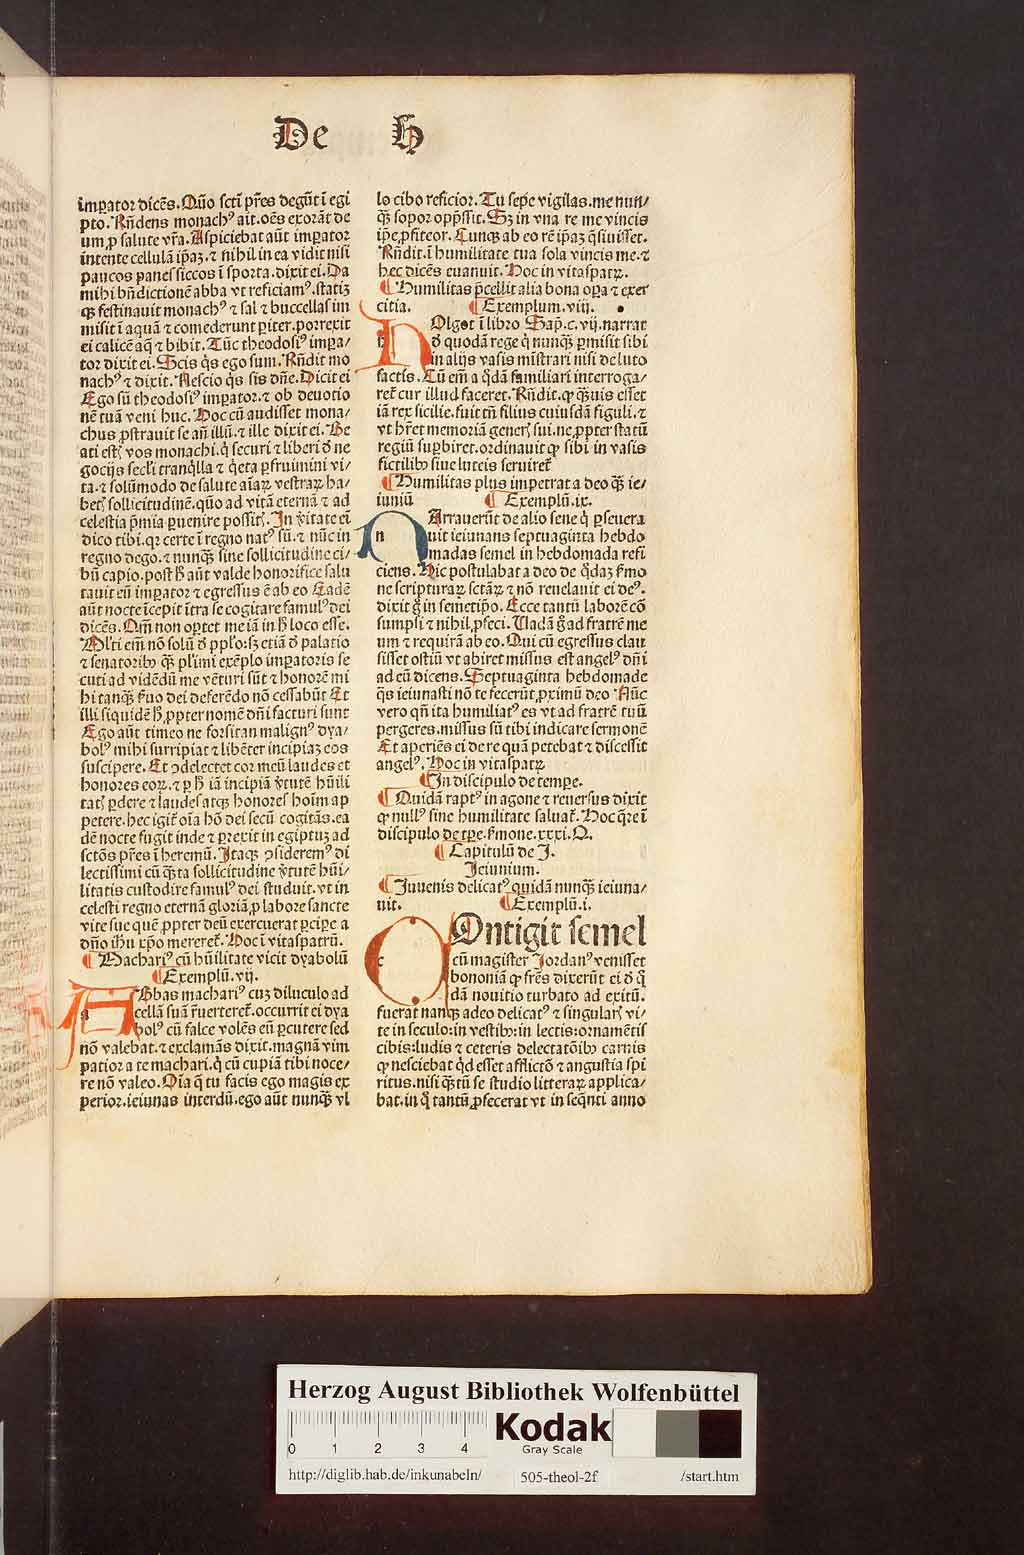 De H
imꝑator dicēs. Quō scti p̄res degūt ī egi
pto. Rn̄dens monachꝰ ait. oēs exorāt de
um ꝓ salute vr̄a. Aspiciebat aūt imꝑator
intente cellulā ip̄aꝫ. ⁊ nihil in ea vidit nisi
paucos panes siccos ī sporta. dixit ei. Da
mihi bn̄dictionē abba vt reficiamꝰ. statiꝫ
qꝫ festinauit monachꝰ ⁊ sal ⁊ buccellas im
misit ī aquā ⁊ comederunt ꝑiter. porrexit
ei calicē aq̄ ⁊ bibit. Tūc theodosiꝰ impa/
tor dixit ei. Scis q̇s ego sum. Rn̄dit mo
nachꝰ ⁊ dixit. Nescio q̇s sis dn̄e. Dicit ei
Ego sū theodosiꝰ imꝑator. ⁊ ob deuotio
nē tuā veni huc. Hoc cū audisset mona/
chus ꝓstrauit se an̄ illū. ⁊ ille dixit ei. Be
ati estꝭ vos monachi. q̇ securi ⁊ liberi đ ne
gocijs secl̄i tranq̇lla ⁊ q̇eta ꝑfruimini vi/
ta. ⁊ solūmodo de salute aīaꝝ vestraꝝ ha/
betꝭ sollicitudinē. quō ad vitā eternā ⁊ ad
celestia p̄mia ꝑuenire possitꝭ. In v̄itate eī
dico tibi. qꝛ certe ī regno natꝰ sū. ⁊ nūc in
regno dego. ⁊ nunqꝫ sine sollicitudine ci/
bū capio. post ħ aūt valde honorifice salu
tauit eū imꝑator ⁊ egressus ē ab eo Eadē
aūt nocte īcepit ītra se cogitare famulꝰ dei
dicēs. Qm̄ non oꝑtet me iā in ħ loco esse.
Ml̄ti em̄ nō solū đ pplo: sꝫ etiā đ palatio
⁊ senatoribꝫ qꝫ pl̄imi exēplo imꝑatoris se
cuti ad vidēdū me vēturi sūt ⁊ honorē mi
hi tanqꝫ ẜuo dei deferēdo nō cessabūt Et
illi siquidē ħ ꝓpter nomē dn̄i facturi sunt
Ego aūt timeo ne forsitan malignꝰ dya/
bolꝰ mihi surripiat ⁊ libēter incipiaꝫ eos
suscipere. Et ꝯdelectet cor meū laudes et
honores eoꝝ. ⁊ ꝑ ħ iā incipiā v̄tutē hūili
tatꝭ ꝑdere ⁊ laudes atqꝫ honores hoīm ap
petere. hec igit̄ oīa hō dei secū cogitās. ea
dē nocte fugit inde ⁊ ꝑrexit in egiptuꝫ ad
sctōs p̄res ī heremū. Itaqꝫ ꝯsideremꝰ di
lectissimi cū qꝫta sollicitudine v̄tutē hūi/
litatis custodire famulꝰ dei studuit. vt in
celesti regno eternā gloriā ꝓ labore sancte
vite sue quē ꝓpter deū exercuerat ꝑcipe a
dn̄o ihū xp̄o mereret̄. Hoc ī vitaspatrū.
¶ Machariꝰ cū hūilitate vicit dyabolū
¶ Exemplū. vij.
Abbas machariꝰ cuꝫ diluculo ad
cellā suā r̄uerteret̄. occurrit ei dya
bolꝰ cū falce volēs eū ꝑcutere sed
nō valebat. ⁊ exclamās dixit. magnā vim
patior a te machari. q̇ cū cupiā tibi noce/
re nō valeo. Oīa q̄ tu facis ego magis ex
perior. ieiunas interdū. ego aūt nunqꝫ vl
lo cibo reficior. Tu sepe vigilas. me nun/
qꝫ sopor opp̄ssit. Sꝫ in vna re me vincis
ip̄e ꝓfiteor. Cunqꝫ ab eo rē ip̄aꝫ q̄siuisset.
Rn̄dit. ī humilitate tua sola vincis me. ⁊
hec dicēs euanuit. Hoc in vitaspatꝝ.
¶ Humilitas p̄cellit alia bona oꝑa ⁊ exer
citia. ¶ Exemplum. viij.
Holgot ī libro Sap̄. c. vij. narrat
đ quodā rege q̇ nunqꝫ ꝑmisit sibi
in alijs vasis mīstrari nisi de luto
factis. Cū em̄ a q̇dā familiari interroga/
ret̄ cur illud faceret. Rn̄dit. ꝙ qꝫuis esset
iā rex sicilie. fuit tn̄ filius cuiusdā figuli. ⁊
vt hr̄et memoriā generꝭ sui. ne ꝓpter statū
regiū suꝑbiret. ordinauit ꝙ sibi in vasis
fictilibꝫ siue luteis seruiret̄
¶ Humilitas plus impetrat a deo qꝫ ie/
iuniū ¶ Exemplū. ix.
Narrauerūt de alio sene q̇ ꝑseuera
uit ieiunans septuaginta hebdo
madas semel in hebdomada refi
ciens. Hic postulabat a deo de q̇daꝫ ẜmo
ne scripturaꝝ sctāꝝ ⁊ nō reuelauit ei deꝰ.
dixit ḡ in semetip̄o. Ecce tantū laborē cō
sumpsi ⁊ nihil ꝓfeci. Vadā ḡ ad fratrē me
um ⁊ requirā ab eo. Qui cū egressus clau
sisset ostiū vt abiret missus est angelꝰ dn̄i
ad eū dicens. Septuaginta hebdomade
q̄s ieiunasti nō te fecerūt ꝓximū deo Nūc
vero qn̄ ita humiliatꝰ es vt ad fratrē tuū
pergeres. missus sū tibi indicare sermonē
Et aperiēs ei de re quā petebat ⁊ discessit
angelꝰ. Hoc in vitaspatꝝ
¶ In discipulo de tempe.
¶ Quidā raptꝰ in agone ⁊ reuersus dixit
ꝙ nullꝰ sine humilitate saluat̄. Hoc q̄re ī
discipulo de tꝑe. ẜmone. xxxi. Q.
¶ Capitulū de J.
Jeiunium.
¶ Juuenis delicatꝰ quidā nunqꝫ ieiuna/
uit. ¶ Exemplū. i.
COntigit semel
cū magister Jordanꝰ venisset
bononiā ꝙ fr̄es dixerūt ei đ q̇
dā nouitio turbato ad exitū.
fuerat nanqꝫ adeo delicatꝰ ⁊ singularꝭ vi/
te in seculo: in vestibꝫ: in lectis: ornamētis
cibis: ludis ⁊ ceteris delectatōibꝫ carnis
ꝙ nesciebat q̇d esset afflictō ⁊ angustia spi
ritus. nisi qꝫtū se studio litteraꝝ applica/
bat. in q̇ tantū ꝓfecerat vt in seq̄nti anno
Herzog August Bibliothek Wolfenbüttel
0 1 2 3 4
Kodak
Gray Scale
http://diglib.hab.de/inkunabeln/ 505-theol-2f /start.htm